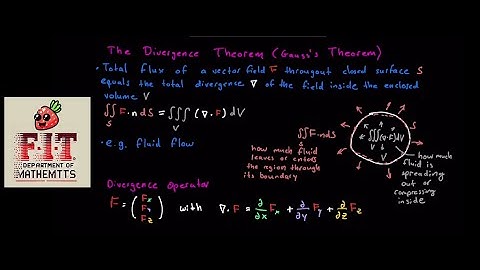 The Divergence Theorem (Gauss's Theorem)
• Total flux of a vector field F througout closed surface S
equals the total divergence ∇ of the field inside the enclosed
volume V
∬_S F·n dS = ∭_V (∇·F) dV
• e.g. fluid flow
∬_S F·n dS
how much fluid
leaves or enters
the region through
its boundary
∭_V (∇·F) dV
how much
fluid is
spreading
out or
compressing
inside
F·I·T
DEPARTMENT OF
MATHEMTTS
Divergence Operator
F = (Fx Fy Fz) with ∇·F = ∂/∂x Fx + ∂/∂y Fy + ∂/∂z Fz